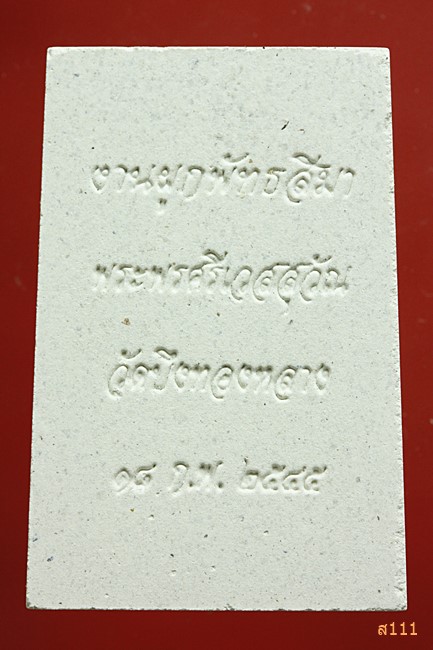 งานผูกพัทธสีมา
พระพรศรีเวสสุวัณ
วัดบึงทองหลาง
๑๘ ก.พ. ๒๕๔๕
ส111